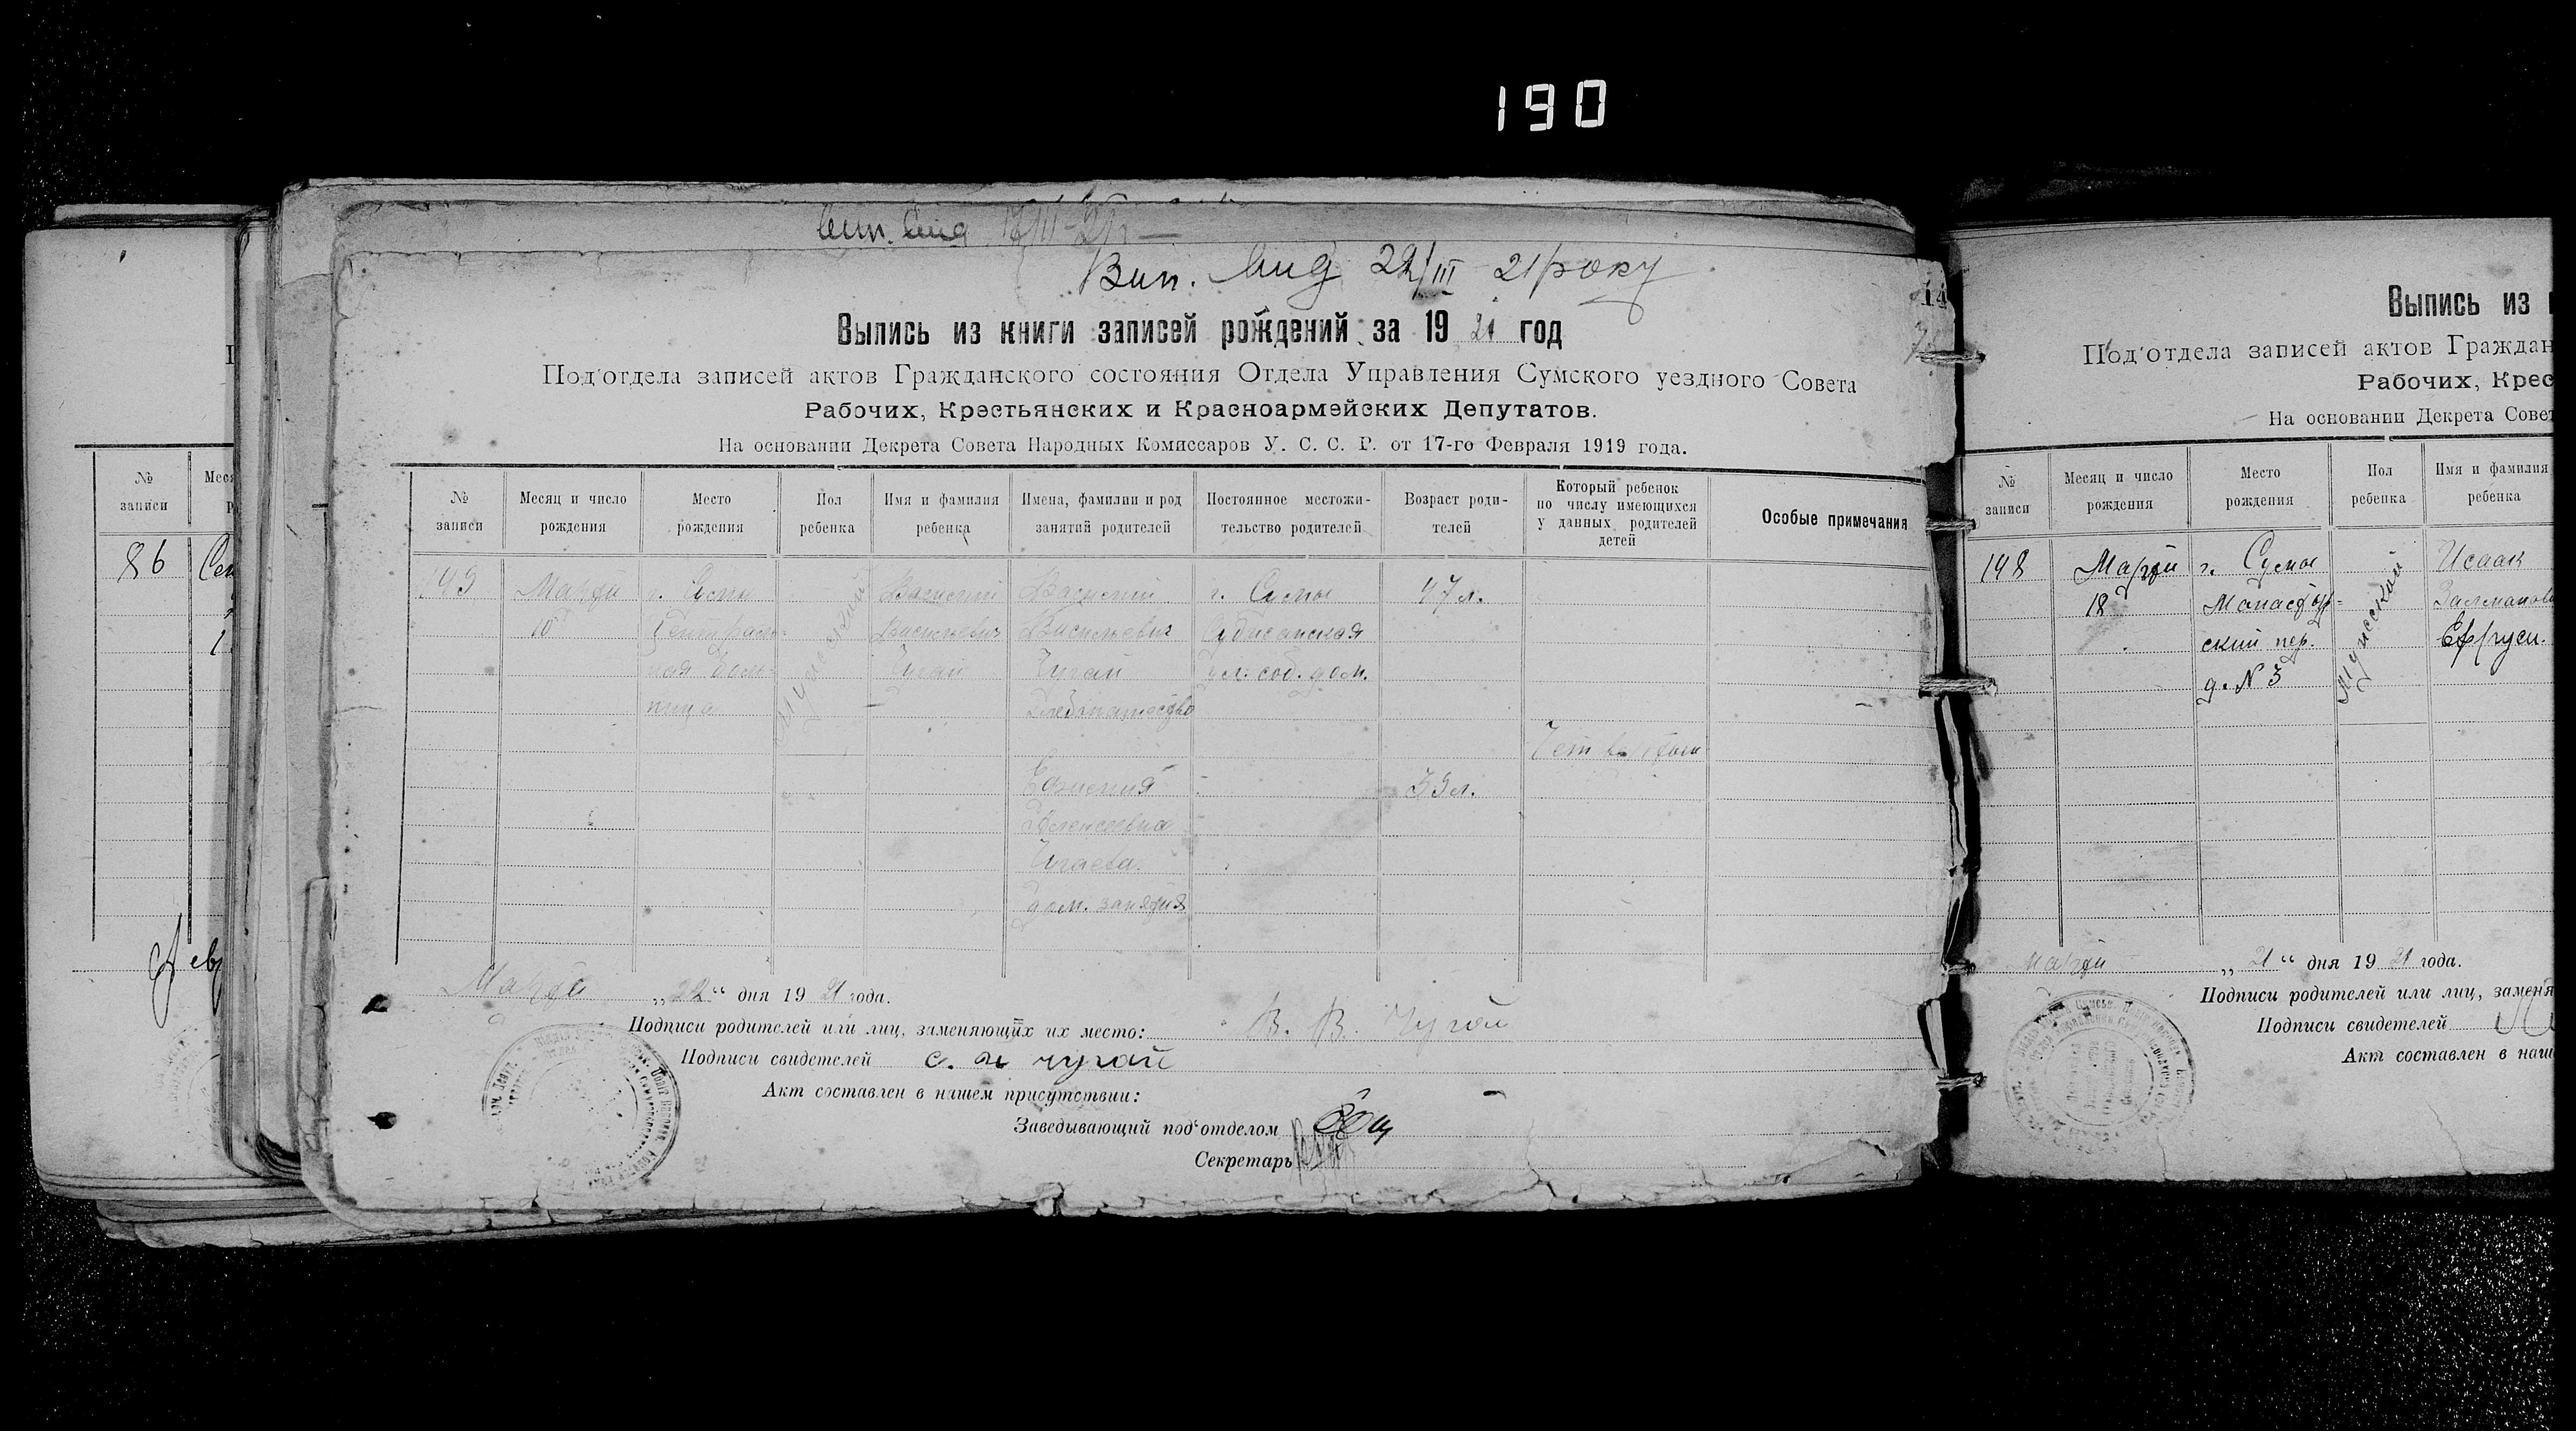 190
Вип. вид 22/III 21 року
Выпись из книги записей рождений за 19 21 год
Под'отдела записей актов Гражданского состояния Отдела Управления Сумского уездного Совета
Рабочих, Крестьянских и Красноармейских Депутатов.
На основании Декрета Совета Народных Комиссаров У. С. С. Р. от 17-го Февраля 1919 года.
№ записи
Месяц и число рождения
Место рождения
Пол ребенка
Имя и фамилия ребенка
Имена, фамилии и род занятий родителей
Постоянное местожи-
тельство родителей
Возраст роди-
телей
Который ребенок
по числу имеющихся
у данных родителей
детей
Особые примечания
Марта
10
г. Сумы
Централь-
ная боль-
ница
мужеский
Василий
Васильевич
Чугай
Василий
Васильевич
Чугай
Хлебопашество
г. Сумы
ул. соб. дом.
47 л.
Ефимия
Алексеевна
Чугаева.
дом. занятия
39 л.
Марта „22“ дня 19 21 года.
Подписи родителей или лиц, заменяющих их место: В. В. Чугай
Подписи свидетелей чугай
Акт составлен в нашем присутствии:
Заведывающий под'отделом
Секретарь
№
записи
86
Выпись из
Под'отдела записей актов Граждан
Рабочих, Крес
На основании Декрета Совет
№ записи
Месяц и число рождения
Место рождения
Пол ребенка
Имя и фамилия ребенка
148
Марта
18
г. Сумы
ский пер.
д. N 3
мужеский
Исаак
Залманов
Ефруси.
Марта „21“ дня 19 21 года.
Подписи родителей или лиц, заменя
Подписи свидетелей
Акт составлен в наш